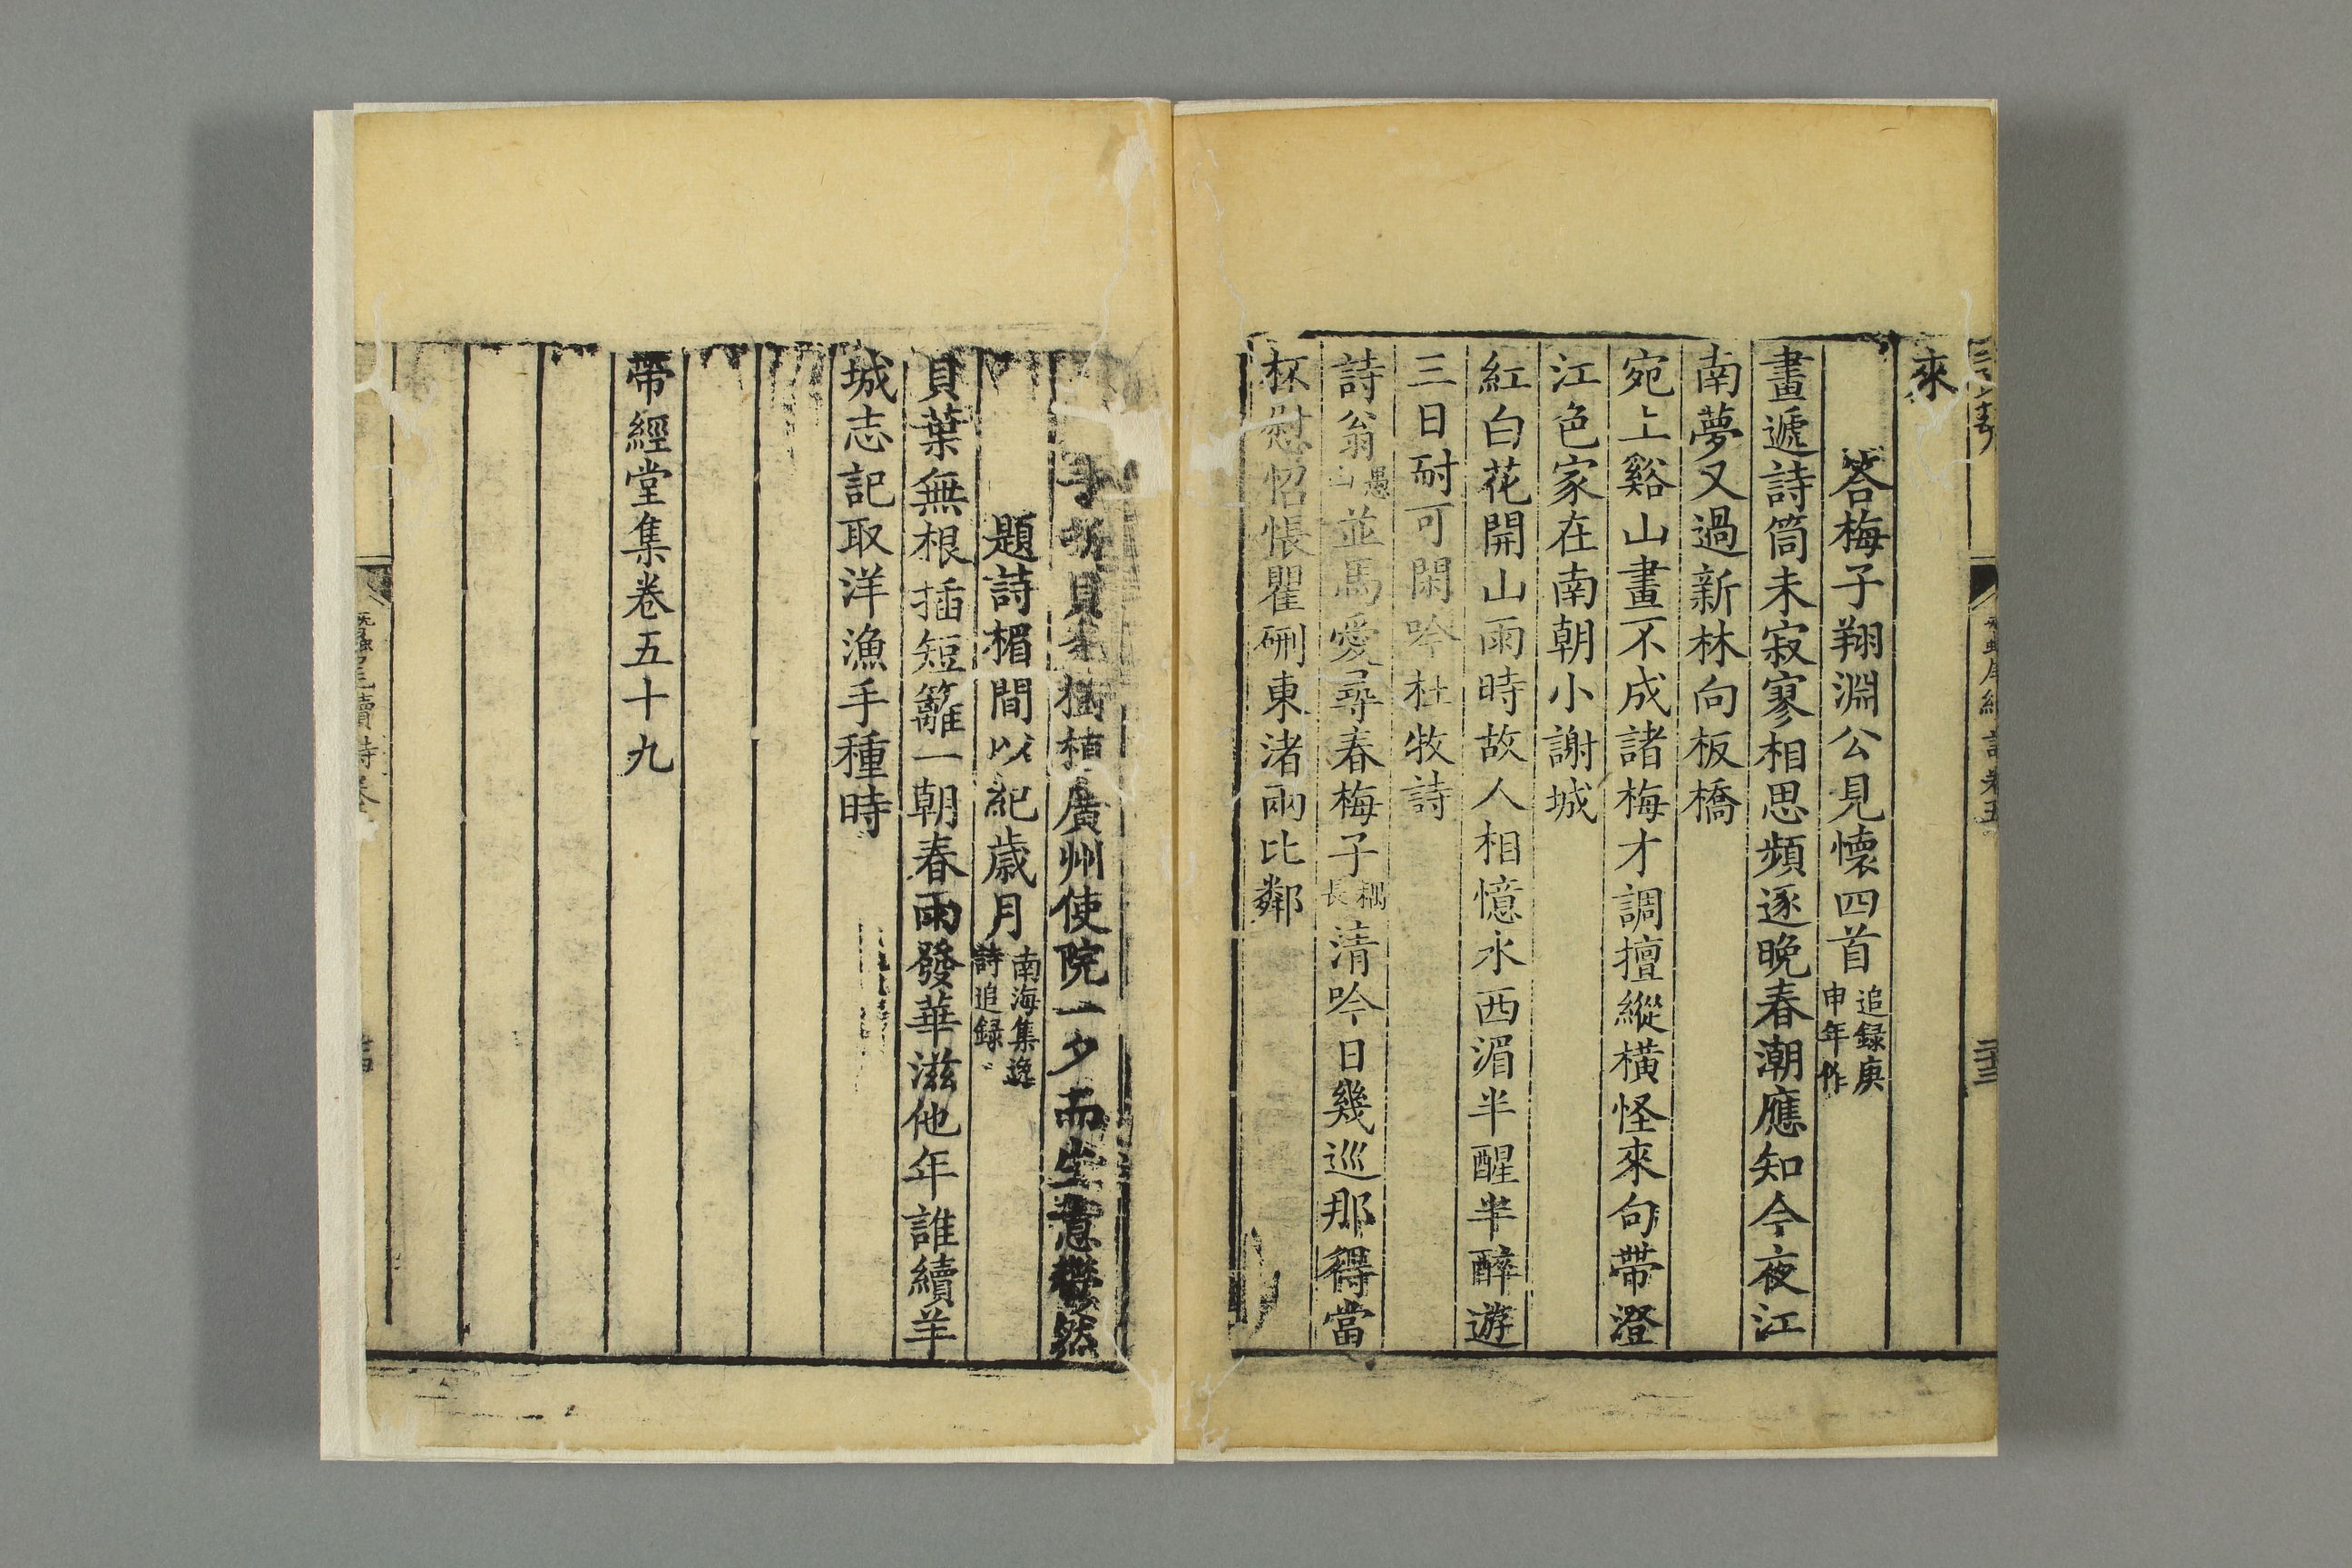 來
答梅子翔淵公見懷四首追録庚申年作
畫遞詩筒未寂寥相思頻逐晚春潮應知今夜江
南夢又過新林向板橋
宛上谿山畫不成諸梅才調擅縱橫怪來句帶澄
江色家在南朝小謝城
紅白花開山雨時故人相憶水西湄半醒半醉遊
三日耐可閑吟杜牧詩
詩翁愚山並馬愛尋春梅子耦長清吟日幾巡那得當
杯慰怊悵瞿硎東渚兩比鄰
手折貝葉插植廣州使院一夕而生意欝然
題詩楣間以紀歳月南海集逸詩追録
貝葉無根插短籬一朝春雨發華滋他年誰續羊
城志記取洋漁手種時
帶經堂集卷五十九